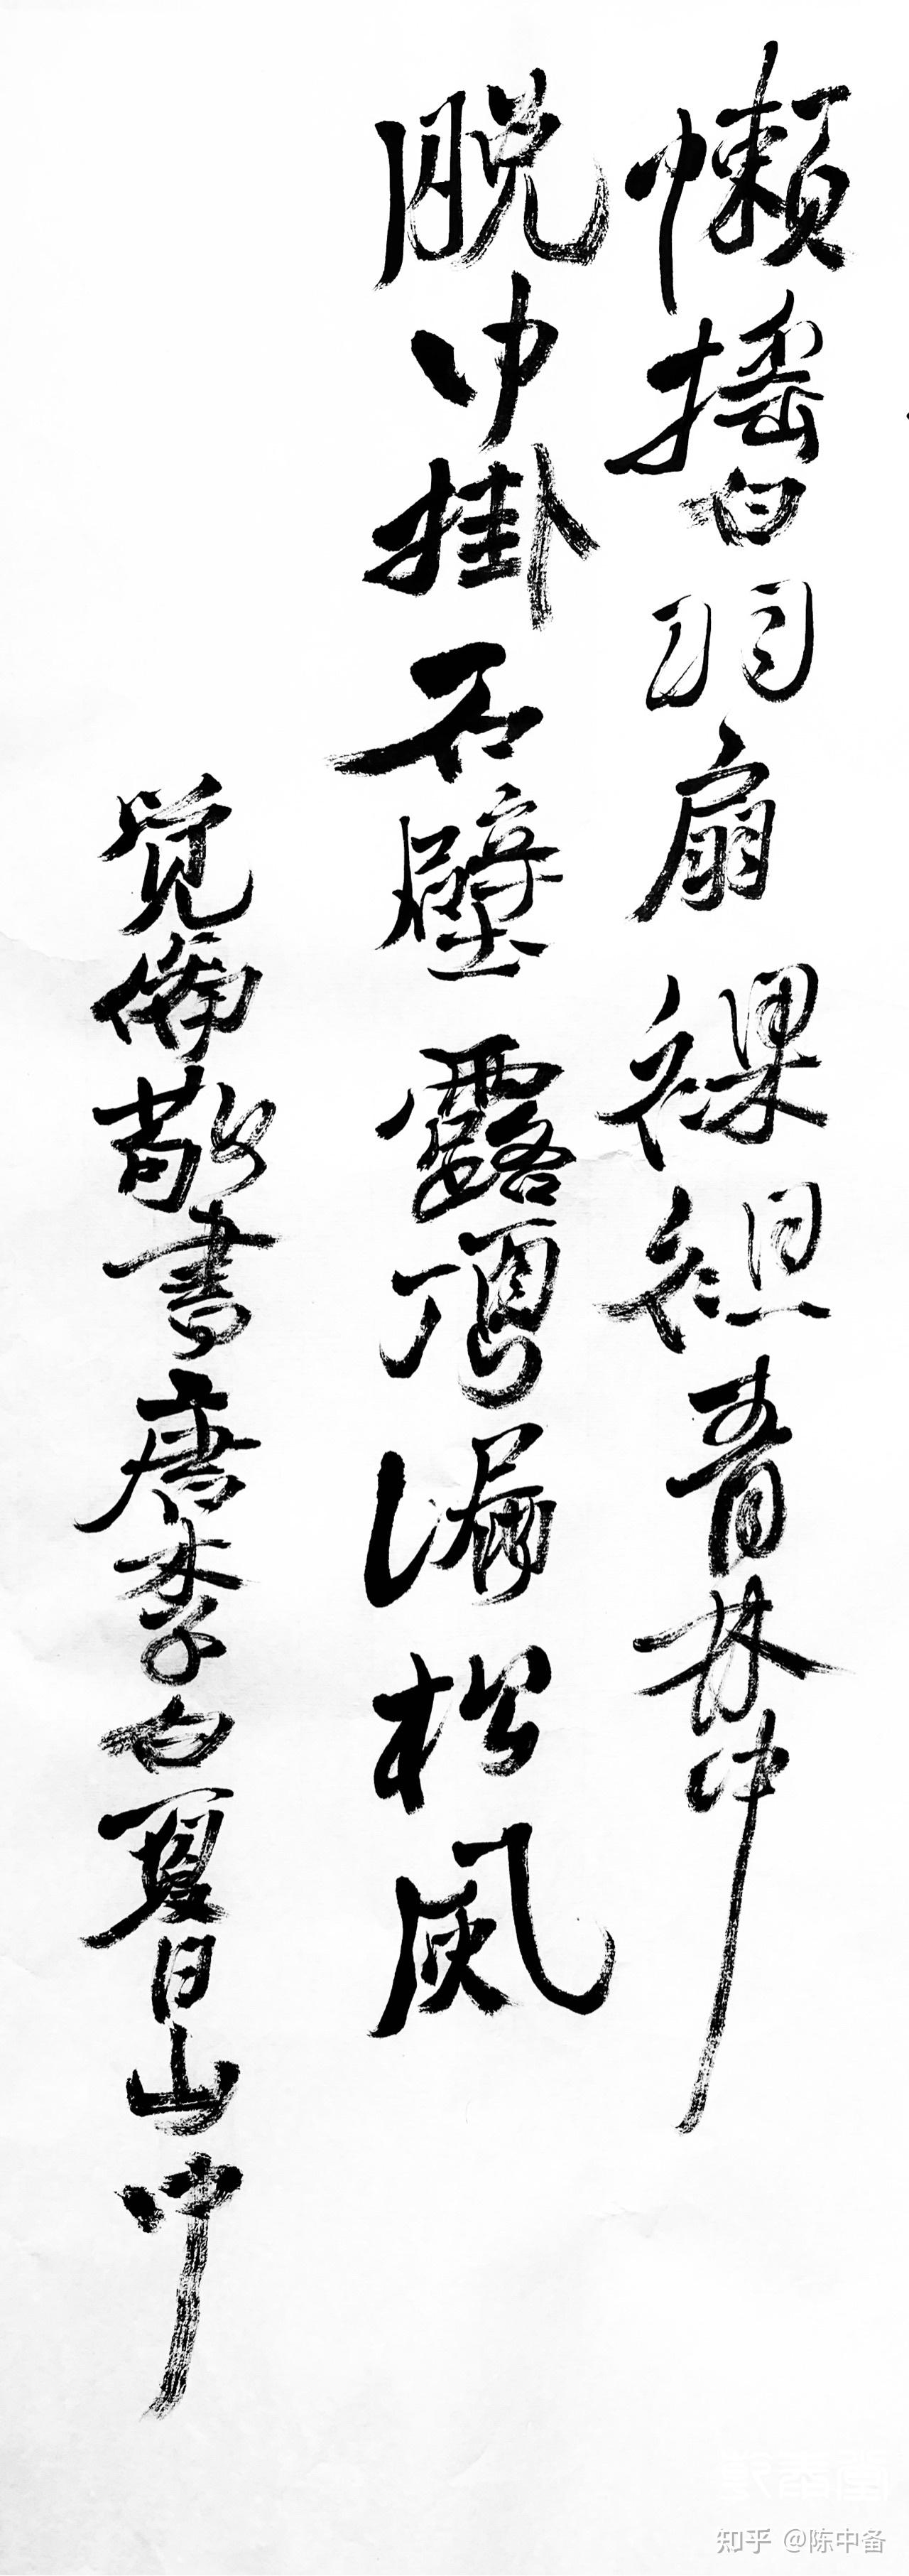 懶摇白羽扇裸袒青林中
脱巾掛石壁露頂漏松风
觉備敬書唐李白夏日山中
知乎 @陈中备